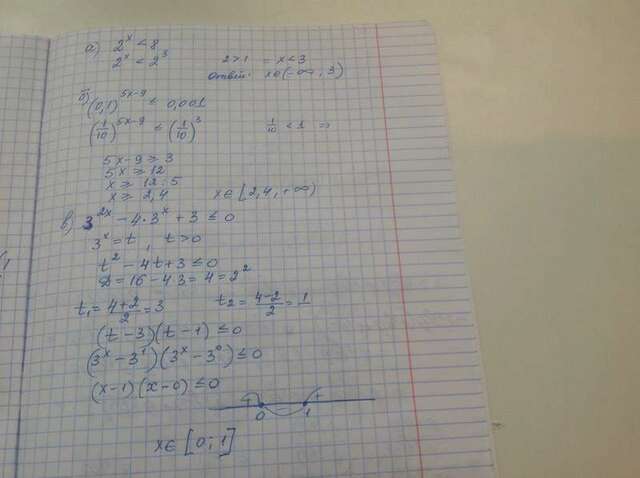 а) 2^x < 8
2^x < 2^3    2 > 1 = x < 3
Ответ: x∈(-∞; 3)
б) (0,1)^{5x-9} ≤ 0,001
(1/10)^{5x-9} ≤ (1/10)^3    1/10 < 1 ⇒
5x - 9 ≥ 3
5x ≥ 12
x ≥ 12 : 5
x ≥ 2,4    x∈[2,4, +∞)
в) 3^{2x} - 4·3^x + 3 ≤ 0
3^x = t, t > 0
t^2 - 4t + 3 ≤ 0
D = 16 - 4·3 = 4 = 2^2
t₁ = (4+2)/2 = 3    t₂ = (4-2)/2 = 1
(t - 3)(t - 1) ≤ 0
(3^x - 3^1)(3^x - 3^0) ≤ 0
(x - 1)(x - 0) ≤ 0
+ - +
0 1
x∈[0; 1]